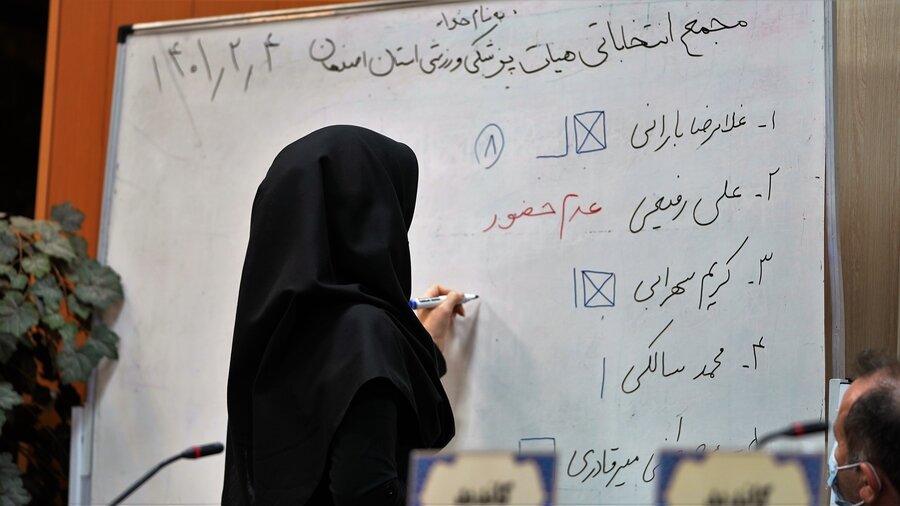 به نام خدا
مجمع انتخاباتی هیات پزشکی ورزشی استان اصفهان ۱۴۰۱٫۲٫۴
۱- غلامرضا بارانی ۸
۲- علی رفیعی عدم حضور
۳- کریم سهرابی
۴- محمد سالکی
میرقادری